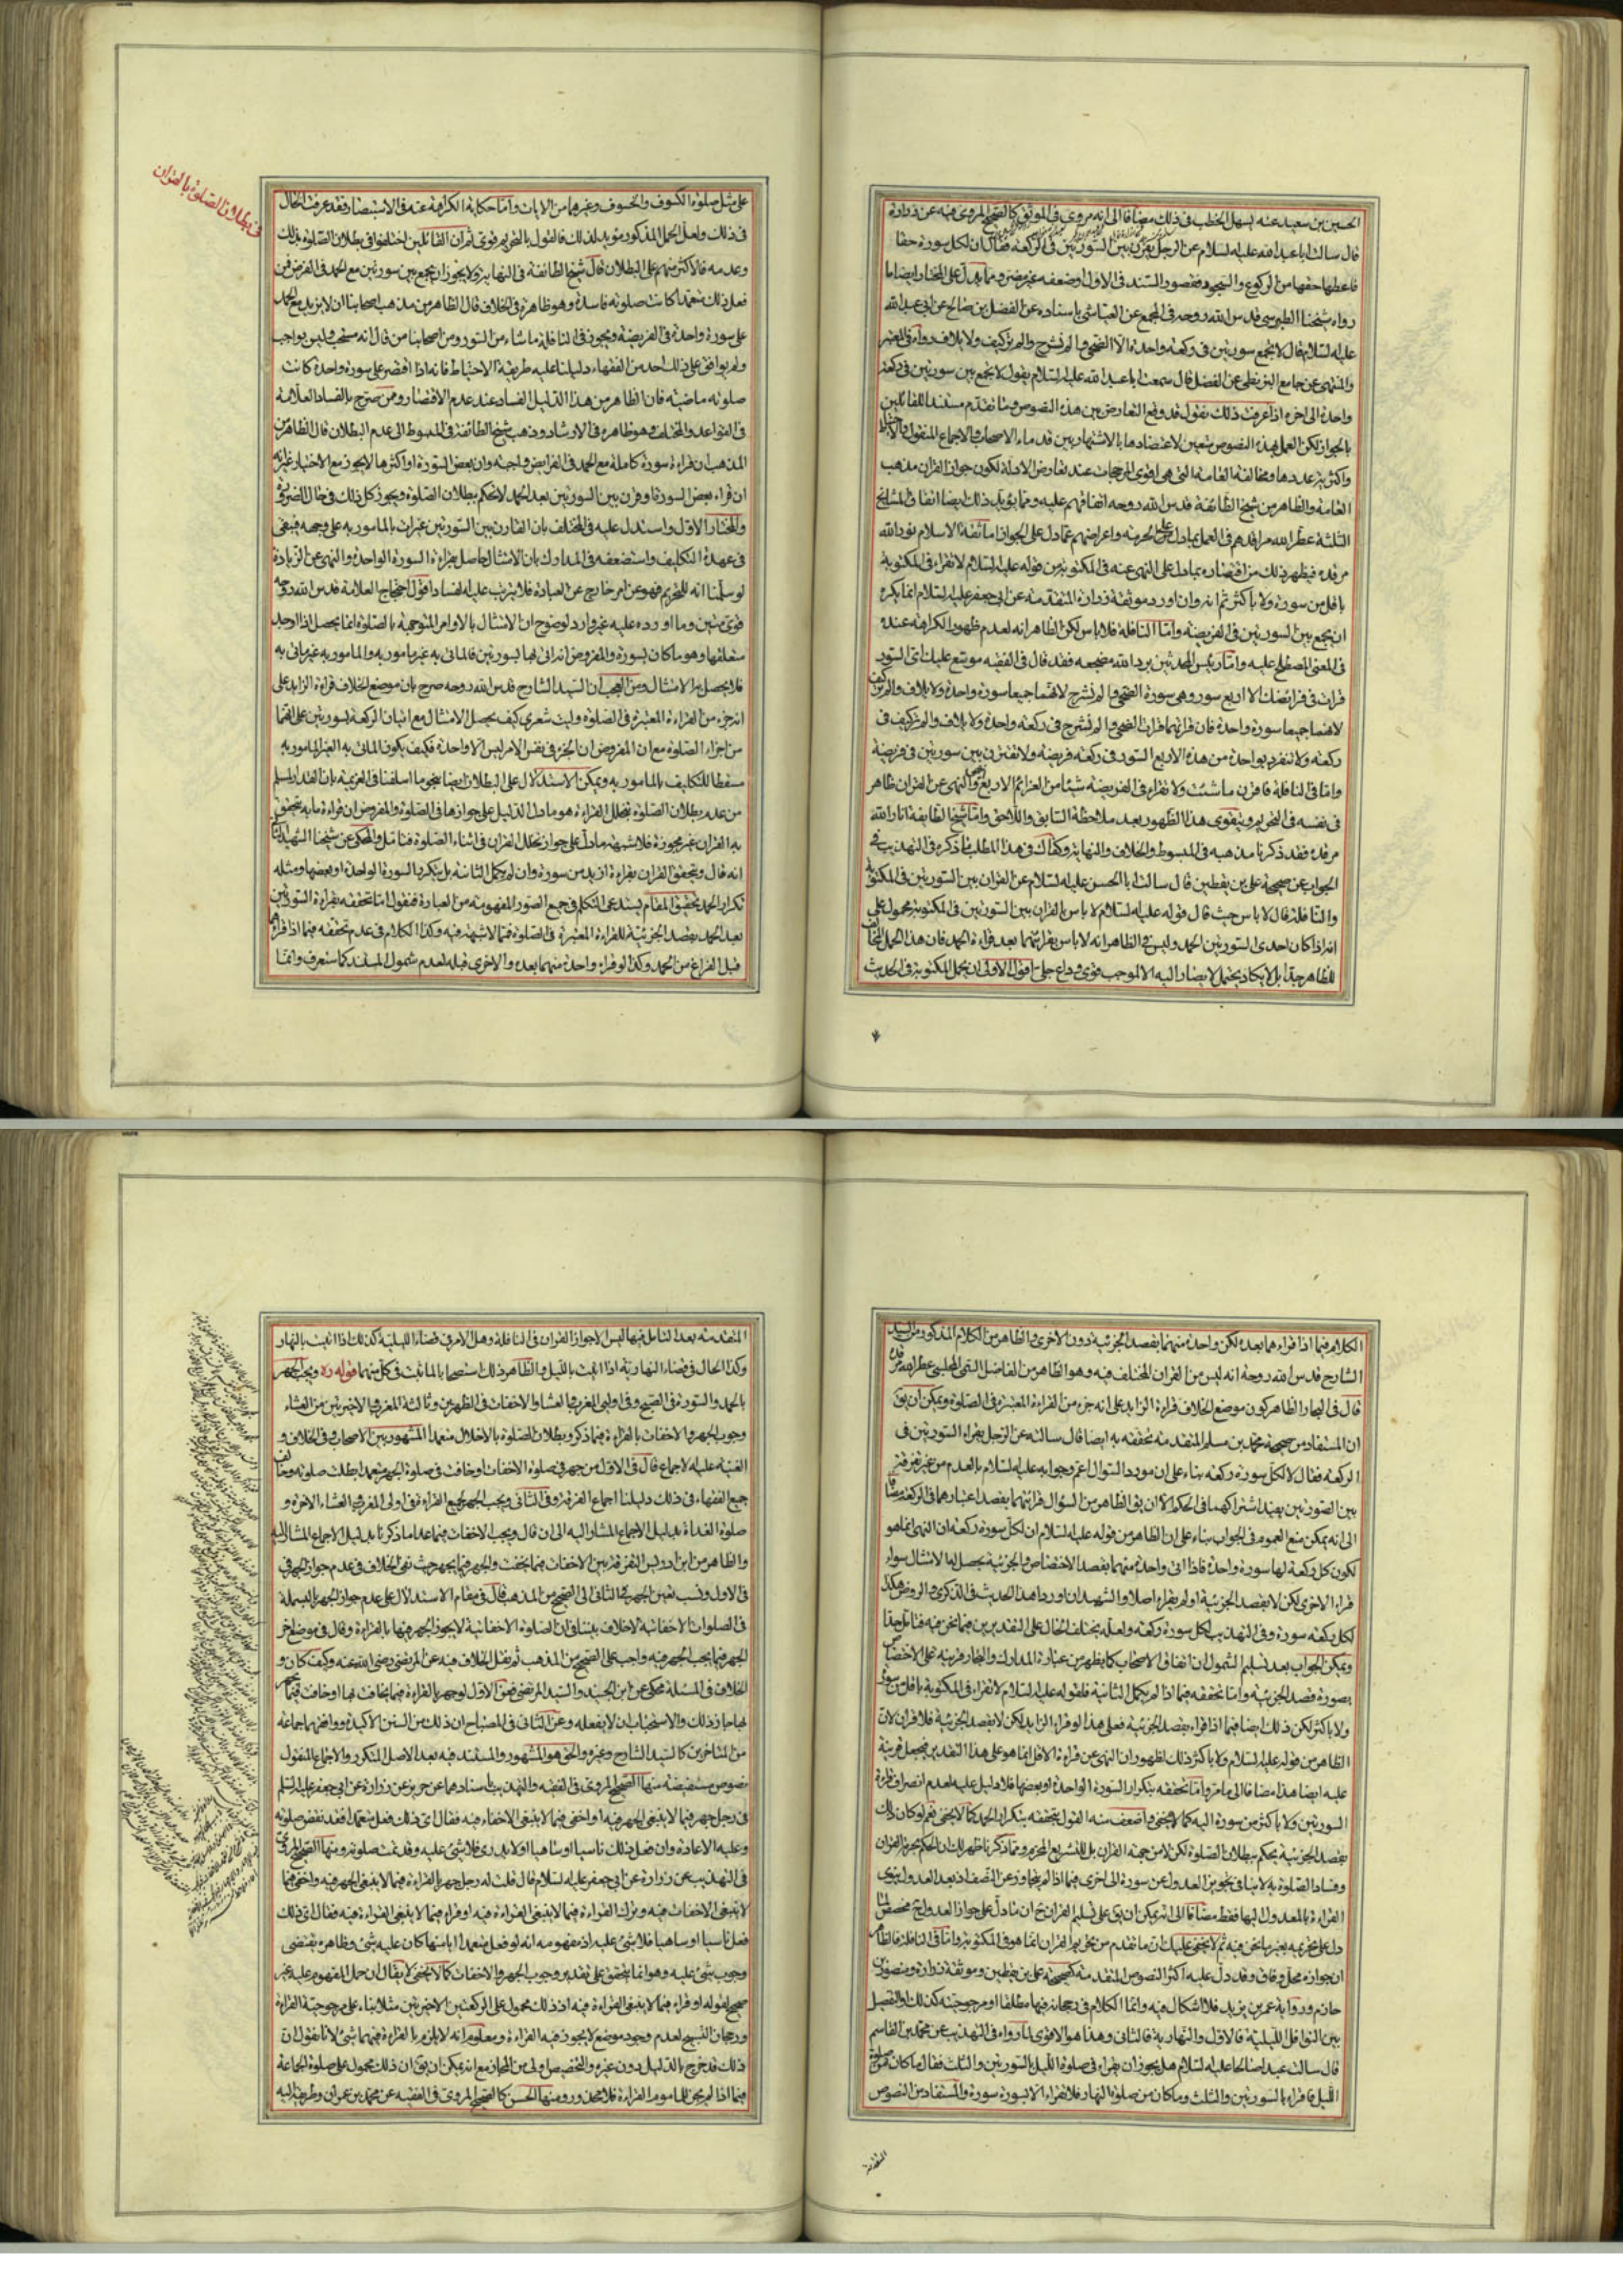 الحسين بن سعيد عنه يسهل الخطب في ذلك مضافا الى انه مروى في الموثق كالصحيح المروى فيه عن زرارة
قال سالت ابا عبد الله عليه السلام عن الرجل يقرن بين السورتين في الركعة فقال ان لكل سورة حقا
فاعطها حقها من الركوع والسجود فقصور السند في الاول او ضعفه غير مضر ومما يدل على المختار ايضا ما
رواه شيخنا الطبرسي قدس الله روحه في المجمع عن العياشي باسناده عن المفضل بن صالح عن ابي عبد الله
عليه السلام قال لا تجمع سورتين في ركعة واحدة الا الضحى والم نشرح والم تر كيف ولايلاف رواه في المعتبر
والمنتهى عن جامع البزنطي عن المفضل قال سمعت ابا عبد الله عليه السلام يقول لا تجمع بين سورتين في ركعة
واحدة الى اخره اذا عرفت ذلك نقول قد وقع التعارض بين هذه النصوص وما تقدم مستندا للقائلين
بالجواز لكن العمل بهذه النصوص متعين لاعتضادها بالاشتهار بين قدماء الاصحاب والاجماع المنقول
واكثرية عددها ومخالفة العامة التي هي اقوى المرجحات عند تعارض الادلة لكون جواز القران مذهب
العامة والظاهر من شيخ الطائفة قدس الله روحه اتفاقهم عليه ومما يؤيد ذلك ايضا اتفاق المشايخ
الثلثة عطر الله مراقدهم في العمل بما دل على الحرمة واعراضهم عما دل على الجواز اما ثقة الاسلام نور الله
مرقده فيظهر ذلك من اقتصاره بما دل على النهي عنه في المكتوبة من قوله عليه السلام لا تقراء في المكتوبة
باقل من سورة ولا باكثر ثم انه وان اورد موثقة زرارة المتقدمة عن ابي جعفر عليه السلام انما يكره
ان يجمع بين السورتين في الفريضة واما النافلة فلا باس لكن الظاهر انه لعدم ظهور الكراهة عنده
في المعنى المصطلح عليه واما رئيس المحدثين برد الله مضجعه فقد قال في الفقيه موسع عليك اي السور
قرات في فرائضك الا اربع سور وهي سورة الضحى والم نشرح لانهما جميعا سورة واحدة ولايلاف والم تر كيف
لانهما جميعا سورة واحدة فان قراتهما قرات الضحى والم نشرح في ركعة واحدة ولايلاف والم تر كيف في
ركعة ولا تنفرد بواحدة من هذه الاربع السور في ركعة فريضة ولا تقرن بين سورتين في فريضة
واما في النافلة فاقرن ما شئت ولا تقراء في الفريضة شيئا من العزائم الاربع والنهي عن القران ظاهر
في نفسه في التحريم ويتقوى هذا الظهور بعد ملاحظة السابق واللاحق واما شيخ الطائفة انار الله
مرقده فقد ذكرنا مذهبه في المبسوط والخلاف والنهاية وكذلك في هذا المطلب ما ذكره في التهذيب في
الجواب عن صحيحة علي بن يقطين قال سالت ابا الحسن عليه السلام عن القران بين السورتين في المكتوبة
والنافلة قال لا باس حيث قال قوله عليه السلام لا باس بالقران بين السورتين في المكتوبة محمول على
انه اذا كان احدى السورتين الحمد وليس في الظاهر انه لا باس بقرائتهما بعد قراءة الحمد فان هذا الحمل
للظاهر جدا بل لا يكاد يحتمل لا يصار اليه الا لموجب قوى وداع جلى اقول الاولى ان يحمل المكتوبة في الحديث
في بطلان الصلوة بالقران
على مثل صلوة الكسوف والخسوف وغيرهما من الايات واما حكاية الكراهة عنه في الاستبصار فقد عرفت الحال
في ذلك ولعل الحمل المذكور مؤيد لذلك فالقول بالتحريم قوى ثم ان القائلين اختلفوا في بطلان الصلوة بذلك
وعدمه فالاكثر منهم على البطلان قال شيخ الطائفة في النهاية ولا يجوز ان يجمع بين سورتين مع الحمد في الفرض فمن
فعل ذلك متعمدا كانت صلوته فاسدة وهو ظاهره في الخلاف قال الظاهر من مذهب اصحابنا ان لا يزيد مع الحمد
على سورة واحدة في الفريضة ويجوز في النافلة ما شاء من السور ومن اصحابنا من قال انه مستحب وليس بواجب
ولم يوافق على ذلك احد من الفقهاء دليلنا عليه طريقة الاحتياط فانه اذا اقتصر على سورة واحدة كانت
صلوته ماضية فان الظاهر من هذا الدليل الفساد عند عدم الاقتصار وممن صرح بالفساد العلامة
في القواعد والمختلف وهو ظاهره في الارشاد وذهب شيخ الطائفة في المبسوط الى عدم البطلان قال الظاهر من
المذهب ان قراءة سورة كاملة مع الحمد في الفرايض واجبة وان بعض السورة او اكثرها لا يجوز مع الاختيار غير انه
ان قراء بعض السورة او قرن بين السورتين بعد الحمد لا نحكم ببطلان الصلوة ويجوز كل ذلك في حال الضرورة
والمختار الاول واستدل عليه في المختلف بان القارن بين السورتين غير ات بالمامور به على وجهه فيبقى
في عهدة التكليف واستضعفه في المدارك بان الامتثال حاصل بقراءة السورة الواحدة والنهي عن الزيادة
لو سلمنا انه للتحريم فهو عن امر خارج عن العبادة فلا يترتب عليه الفساد اقول احتجاج العلامة قدس الله روحه
قوى متين وما اورده عليه غير وارد لوضوح ان الامتثال بالاوامر المتوجهة بالصلوة انما يحصل اذا اوجد
متعلقها وهو ما كان بسورة والمفروض انه اتى بها بسورتين فالماتى به غير مامور به والمامور به غير ماتى به
فلا يحصل به الامتثال ومن العجب ان السيد الشارح قدس الله روحه صرح بان موضع الخلاف قراءة الزايد على
انه جزء من القراءة المعتبرة في الصلوة وليت شعري كيف يحصل الامتثال مع اتيان الركعة بسورتين على انهما
من اجزاء الصلوة مع ان المفروض ان الجزء في نفس الامر ليس الا واحدة فكيف يكون الماتى به الغير المامور به
مسقطا للتكليف بالمامور به ويمكن الاستدلال على البطلان ايضا بنحو ما اسلفنا في العزيمة بان القدر المسلم
من عدم بطلان الصلوة بتخلل القراءة هو ما دل الدليل على جوازها في الصلوة والمفروض ان قراءة ما به يتحقق
به القران غير مجوزة فلا شبهة ما دل على جواز تخلل القران في اثناء الصلوة فتامل والمحكى عن شيخنا الشهيد الثاني
انه قال ويتحقق القران بقراءة ازيد من سورة وان لم يكمل الثانية بل بتكرار السورة الواحدة او بعضها ومثله
تكرار الحمد تحقيق المقام يستدعى التكلم في جميع الصور المفهومة من العبارة فنقول اما تحققه بقراءة السورتين
بعد الحمد بقصد الجزئية للقراءة المعتبرة في الصلوة فمما لا شبهة فيه وكذا الكلام في عدم تحققه فيما اذا قراء
قبل الفراغ من الحمد وكذا لو قراء واحدة منهما بعده والاخرى قبله لعدم شمول المستند كما ستعرف واما
الكلام فيما اذا قراءهما بعده لكن واحدة منهما بقصد الجزئية دون الاخرى والظاهر من الكلام المذكور من السيد
الشارح قدس الله روحه انه ليس من القران المختلف فيه وهو الظاهر من الفاضل التقى المجلسي عطر الله مرقده
قال في البحار الظاهر كون موضع الخلاف قراءة الزايد على انه جزء من القراءة المعتبرة في الصلوة ويمكن ان يق
ان المستفاد من صحيحة محمد بن مسلم المتقدمة تحققه به ايضا قال سالته عن الرجل يقراء السورتين في
الركعة فقال لا لكل سورة ركعة بناء على ان مورد السوال اعم وجوابه عليه السلام بالعدم من غير تفرقة
بين الصورتين يفيد اشتراكهما في الحكم الا ان يق الظاهر من السؤال قرائتهما بقصد اعتبارهما في الركعة مضافا
الى انه يمكن منع العموم في الجواب بناء على ان الظاهر من قوله عليه السلام ان لكل سورة ركعة ان النهي انما هو
لكون كل ركعة لها سورة واحدة فاذا اتى واحدة منهما بقصد الاختصاص والجزئية يحصل بها الامتثال سواء
قراء الاخرى لكن لا بقصد الجزئية او لم يقراء اصلا والشهيدان اوردا هذا الحديث في الذكرى والروض هكذا
لكل ركعة سورة وفي التهذيب لكل سورة ركعة ولعله يختلف الحال على التقديرين فيما نحن فيه فتامل جدا
ويمكن الجواب بعد تسليم الشمول ان اتفاق الاصحاب كما يظهر من عبارة المدارك والبحار قرينة على الاختصاص
بصورة قصد الجزئية واما تحققه فيما اذا لم يكمل الثانية فلقوله عليه السلام لا تقراء في المكتوبة باقل من سورة
ولا باكثر لكن ذلك ايضا فيما اذا قراء بقصد الجزئية فعلى هذا لو قراء الزايد لكن لا بقصد الجزئية فلا قران لان
الظاهر من قوله عليه السلام ولا باكثر ذلك لظهور ان النهي عن قراءة الاقل انما هو على هذا التقدير فيجعل قرينة
عليه ايضا هذا مضافا الى ما مر واما تحققه بتكرار السورة الواحدة او بعضها فلا دليل عليه لعدم انصراف قراءة
السورتين ولا باكثر من سورة اليه كما لا يخفى واضعف منه القول بتحققه بتكرار الحمد كما لا يخفى نعم لو كان ذلك
بقصد الجزئية يحكم ببطلان الصلوة لكن لا من جهة القران بل للتشريع المحرم ومما ذكرنا ظهر لك ان الحكم بحرمة القران
وفساد الصلوة به لا ينافي تجويز العدول عن سورة الى اخرى فيما اذا لم يتجاوز عن النصف اذ بعد العدول ينوى
القراءة بالمعدول اليها فقط مضافا الى انه يمكن ان يق على تسليم القران ح ان ما دل على جواز العدول ح مخصص لما
دل على تحريمه بغير ما نحن فيه ثم لا يخفى عليك ان ما تقدم من تحريم القران انما هو في المكتوبة واما في النافلة فالظاهر
ان جوازه محل وفاق وقد دل عليه اكثر النصوص المتقدمة كصحيحة علي بن يقطين وموثقة زرارة ومنصور بن
حازم ورواية عمر بن يزيد فلا اشكال فيه وانما الكلام في رجحانه فيها مطلقا او مرجوحيته كذلك او التفصيل
بين النوافل الليلية فالاول والنهارية فالثاني وهذا هو الاقوى لما رواه في التهذيب عن محمد بن القاسم
قال سالت عبدا صالحا عليه السلام هل يجوز ان يقراء في صلوة الليل بالسورتين والثلث فقال ما كان من صلوة
الليل فاقراء بالسورتين والثلث وما كان من صلوة النهار فلا تقراء الا بسورة سورة والمستفاد من النصوص
المتقدمة
المتقدمة بعد التامل فيها ليس الا جواز القران في النافلة وهل الامر في قضاء الليلية كذلك اذا اتيت بالنهار
وكذا الحال في قضاء النهارية اذا اتيت بالليل والظاهر ذلك استصحابا لما ثبت في كل منهما قوله ره ويجب الجهر
بالحمد والسورة في الصبح وفي اولتى المغرب والعشاء والاخفات في الظهرين وثالثة المغرب والاخيرتين من العشاء
وجوب الجهر والاخفات بالقراءة فيما ذكر وبطلان الصلوة بالاخلال متعمدا المشهور بين الاصحاب وفي الخلاف و
الغنية عليه الاجماع قال في الاول من جهر في صلوة الاخفات او خافت في صلوة الجهر متعمدا بطلت صلوته وخالف
جميع الفقهاء في ذلك دليلنا اجماع الفرقة وفي الثاني ويجب الجهر بجميع القراءة في اولى المغرب والعشاء الاخرة و
صلوة الغداة بدليل الاجماع المشار اليه الى ان قال ويجب الاخفات فيما عدا ما ذكرنا بدليل الاجماع المشار اليه
والظاهر من ابن ادريس التفرقة بين الاخفات فيما يخفت والجهر فيما يجهر حيث نفى الخلاف في عدم جواز الجهر في
في الاول ونسب تعين الجهر في الثاني الى الصحيح من المذهب قال في مقام الاستدلال على عدم جواز الجهر بالبسملة
في الصلوات الاخفاتية لا خلاف بيننا في ان الصلوة الاخفاتية لا يجوز الجهر فيها بالقراءة وقال في موضع اخر
الجهر فيما يجب الجهر فيه واجب على الصحيح من المذهب ثم نقل الخلاف فيه عن المرتضى رضى الله عنه وكيف كان و
الخلاف في المسئلة محكى عن ابن الجنيد والسيد المرتضى فعن الاول لو جهر بالقراءة فيما يخافت بها او خافت فيما يجهر
بها جاز ذلك والاستحباب ان لا يفعله وعن الثاني في المصباح ان ذلك من السنن الاكيدة ووافقهما جماعة
من المتاخرين كالسيد الشارح وغيره والحق هو المشهور والمستند فيه بعد الاصل المتكرر والاجماع المنقول
نصوص مستفيضة منها الصحيح المروى في الفقيه والتهذيب باسنادهما عن حريز عن زرارة عن ابي جعفر عليه السلم
في رجل جهر فيما لا ينبغى الجهر فيه او اخفى فيما لا ينبغى الاخفاء فيه فقال اى ذلك فعل متعمدا فقد نقض صلوته
وعليه الاعادة وان فعل ذلك ناسيا او ساهيا او لا يدرى فلا شئ عليه وقد تمت صلوته ومنها الصحيح المروى
في التهذيب عن زرارة عن ابي جعفر عليه السلام قال قلت له رجل جهر بالقراءة فيما لا ينبغى الجهر فيه واخفى فيما
لا ينبغى الاخفات فيه وترك القراءة فيما لا ينبغى القراءة فيه او قراء فيما لا ينبغى القراءة فيه فقال اى ذلك
فعل ناسيا او ساهيا فلا شئ عليه اذ مفهومه انه لو فعل متعمدا ايا منها كان عليه شئ وظاهره يقتضى
وجوب شئ عليه وهو انما يتحقق على تقدير وجوب الجهر والاخفات كما لا يخفى لا يقال ان حمل المفهوم عليه غير
صحيح لقوله او قراء فيما لا ينبغى القراءة فيه اذ ذلك محمول على الركعتين الاخيرتين مثلا بناء على مرجوحية القراءة
ورجحان التسبيح لعدم وجود موضع لا يجوز فيه القراءة ومعلوم انه لا يلزم بالقراءة فيهما شئ لانا نقول ان
ذلك قد خرج بالدليل دون غيره والتخصيص اولى من المجاز مع انه يمكن ان يق ان ذلك محمول على صلوة الجماعة
فيما اذا لم يجز للماموم القراءة فلا محذور ومنها الحسن كالصحيح المروى في الفقيه عن محمد بن عمران وطريقه اليه